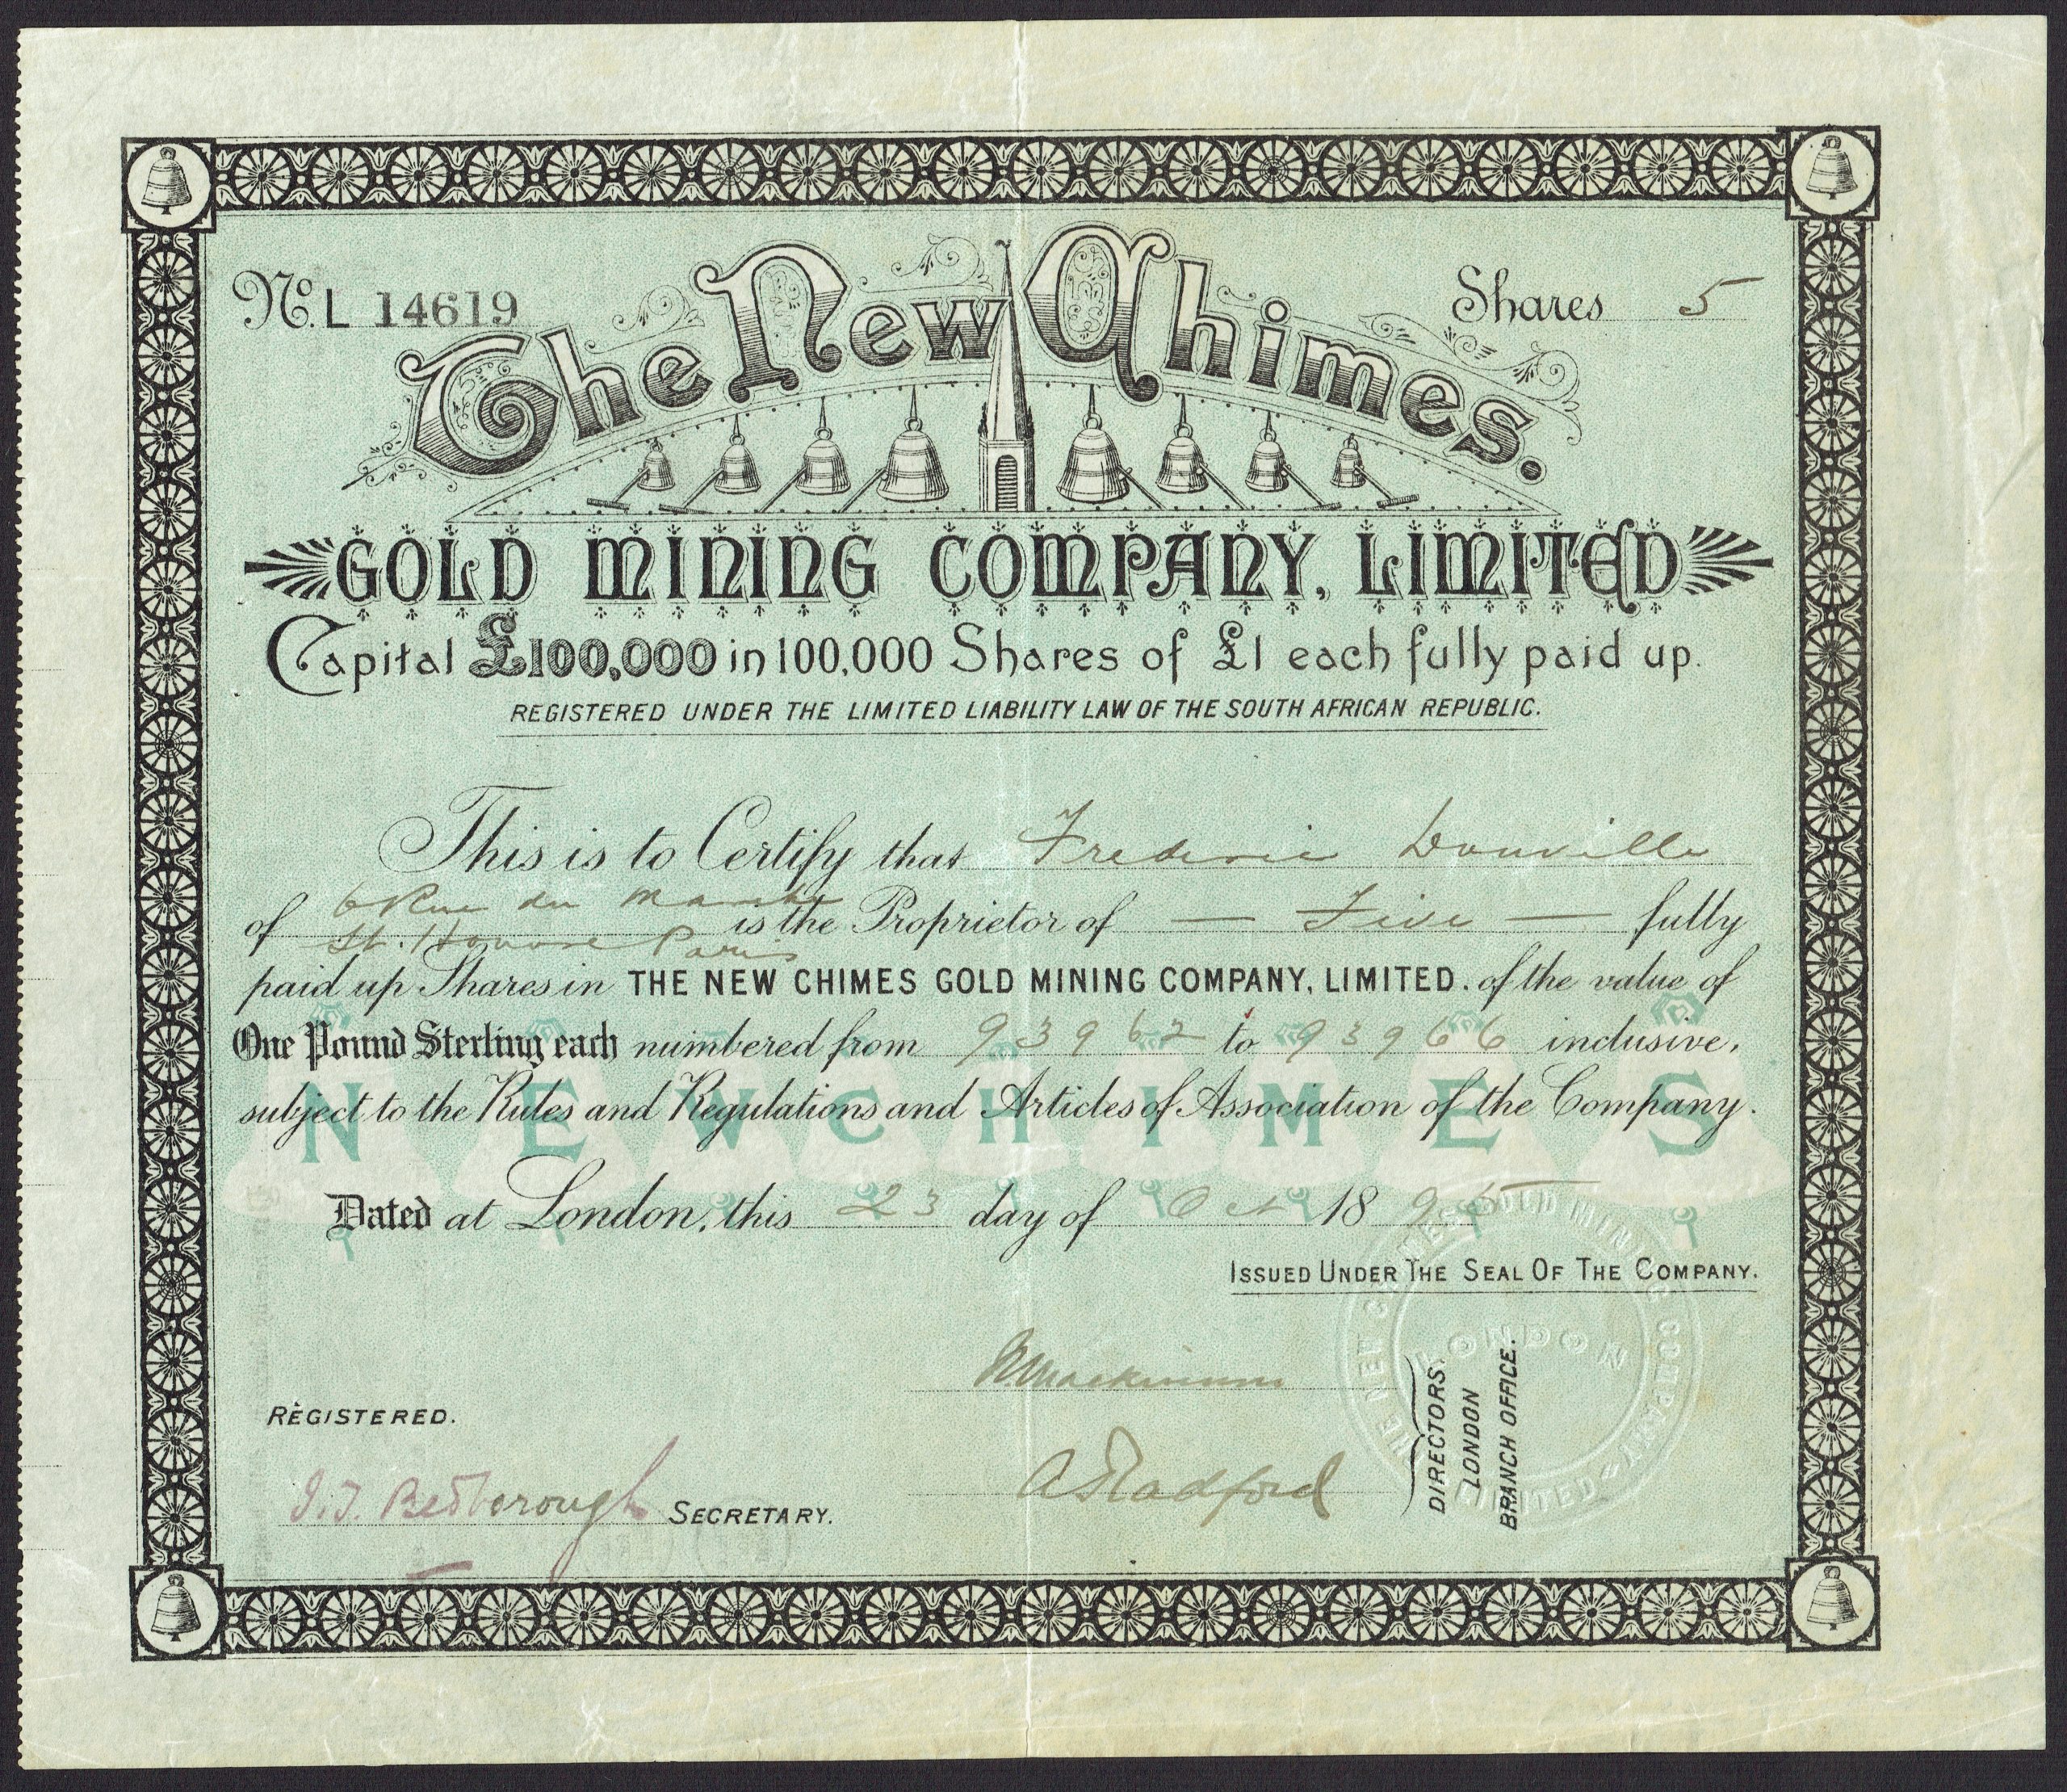 No. L 14619
Shares 5
The New Chimes.
GOLD MINING COMPANY, LIMITED
Capital £100,000 in 100,000 Shares of £1 each fully paid up.
REGISTERED UNDER THE LIMITED LIABILITY LAW OF THE SOUTH AFRICAN REPUBLIC.
This is to Certify that Frederic Donville
of 6 Rue du Marché
St. Honore Paris is the Proprietor of — Five — fully
paid up Shares in THE NEW CHIMES GOLD MINING COMPANY, LIMITED. of the value of
One Pound Sterling each numbered from 93962 to 93966 inclusive,
subject to the Rules and Regulations and Articles of Association of the Company.
NEW CHIMES
Dated at London, this 23 day of Oct 1895
ISSUED UNDER THE SEAL OF THE COMPANY.
THE NEW CHIMES GOLD MINING COMPANY LIMITED
LONDON
Mackinnon
REGISTERED.
J.J. Bedborough SECRETARY.
A Stadford
DIRECTORS.
LONDON
BRANCH OFFICE.